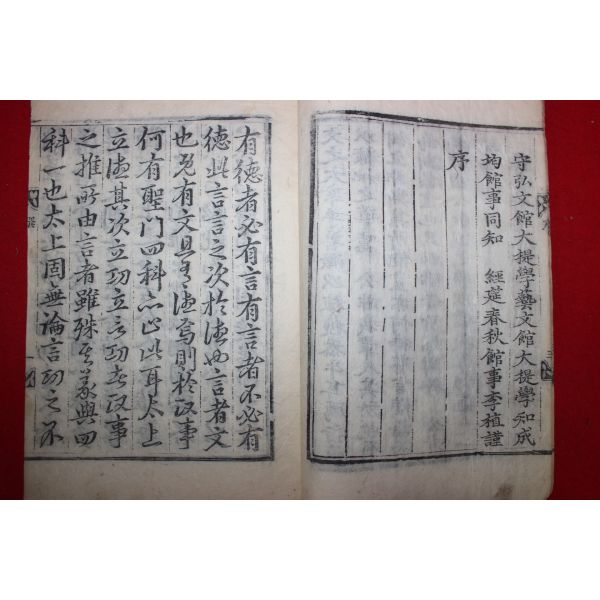 守弘文館大提學藝文館大提學知成
均館事同知 經筵春秋館事李植謹
序
有德者必有言有言者不必有
德此言言之次於德也言者文
也旣有文且有德焉則於政事
何有聖門四科亦止此耳太上
立德其次立功立言功者政事
之推所由言者雖殊其義與四
科一也太上固無論言功之不